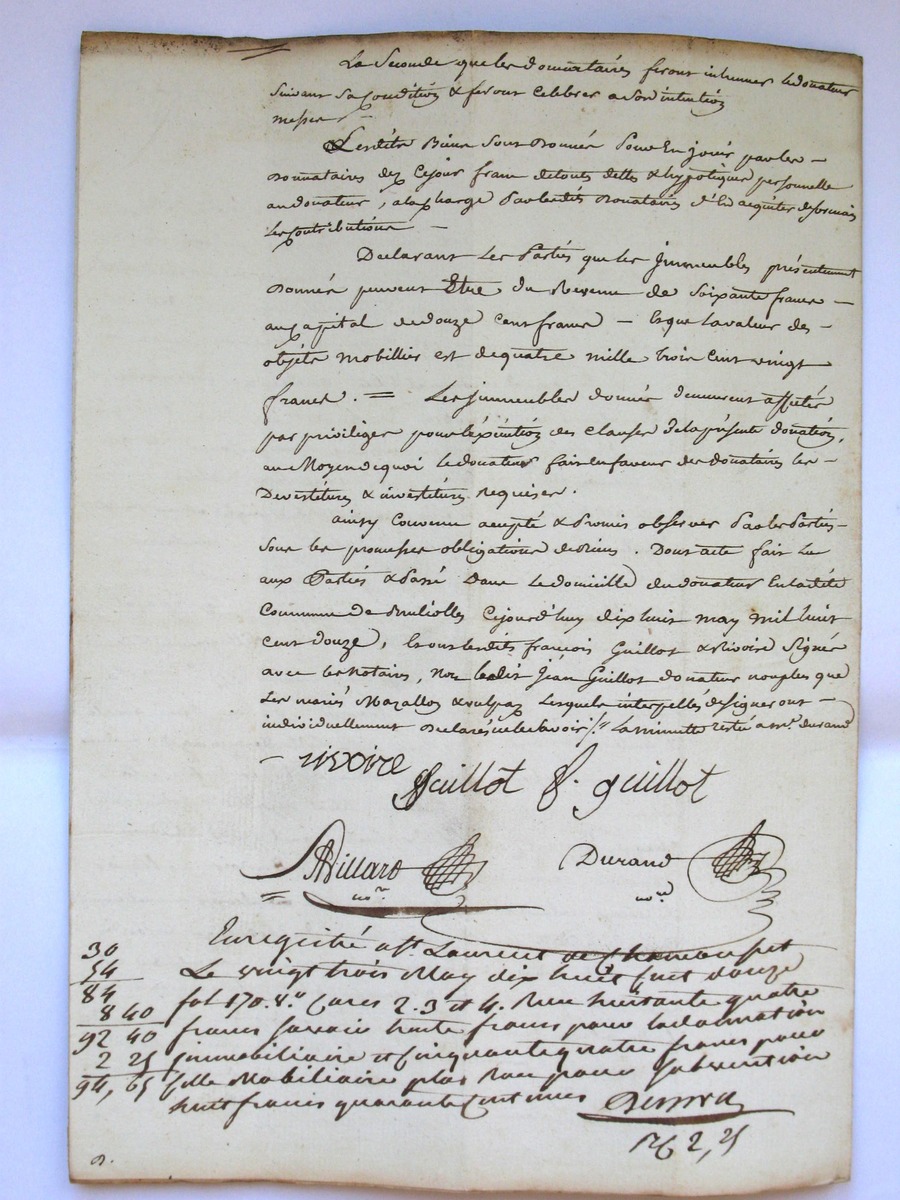 La Seconde que les donnataires feront inhumer le donateur
suivant sa Condition & feront Celebrer a Son intention
messes
Lesdits Biens Sont Donnés Pour En jouir par les
Donnataires dez Cejour franc detouts dettes & hypotiques personnelle
au donateur, ala charge Parlesdits Donataires d'En acquiter desormais
les Contributions —
Declarant Les Parties que les Immeubles présentement
Donnés peuvent Etre du Revenu de Soixante francs —
au capital de douze Cent francs — Et que la valeur des —
objets mobillier est de quatre mille trois Cent vingt
francs. = Les immeubles donnés demeurent affectés
par privilèges pour l'exécution des Clauses de la présente donation,
au Moyen de quoi le donateur fait en faveur des donataires les —
Devestitures & investitures Requises.
ainsy Convenu accepté & Promis observer Par les Parties —
sous les promesses obligations de Biens. Dont acte fait Lu
aux Parties & Passé Dans Le domicille du donateur En ladite
Commune de Brullioles Cejourd'huy dix huit may mil huit
cent douze, Et ont lesdits françois Guillot & Rivoire Signé
avec les Notaires, Non ledit Jean Guillot donateur non plus que
Les mariés Mazallon & Lesquels interpellés de signer ont —
individuellement Declarés ne le Savoir /." La minutte resté a Me. durand
— rivoire
Guillot f. guillot
Villard Durand
nore nore
Enregistré a St. Laurent de Chamousset
Le vingt trois May dix huit Cent douze
fol 170. Vo. Cases 2. 3 et 4. Recu huitante quatre
francs savoir trente francs pour la donnation
immobiliaire et Cinquante quatre francs pour
Celle Mobiliaire plus Recu pour Subvention
huit francs quarante Centimes
30
54
84
8 40
92 40
2 25
94, 65
2, 25